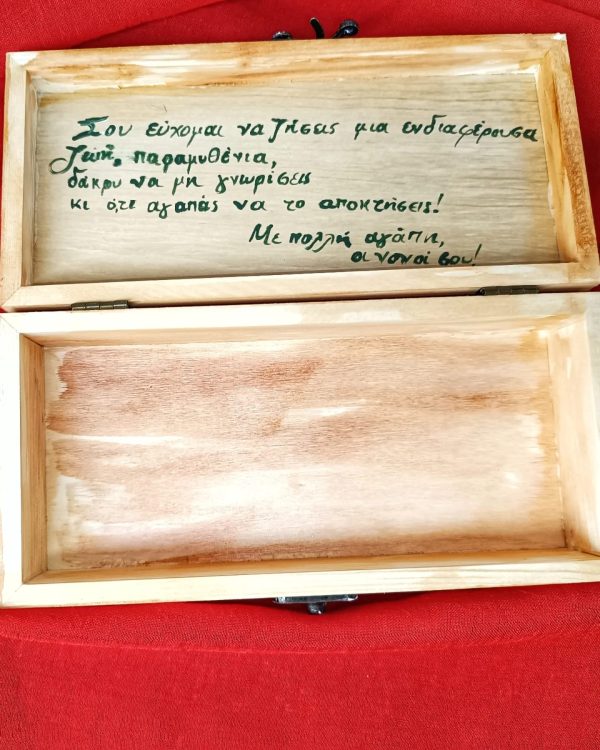 Σου εύχομαι να ζήσεις μια ενδιαφέρουσα
ζωή, παραμυθένια,
δάκρυ να μη γνωρίσεις
κι ό,τι αγαπάς να το αποκτήσεις!
Με πολλή αγάπη,
οι νονοί σου!